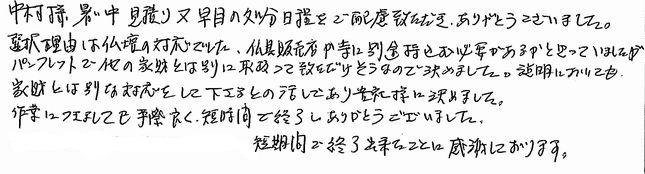 中村様、暑い中 見積り又早目の処分日程をご配慮致だき、ありがとうございました。
選択理由は仏壇の対応でした、仏具販売店や寺に別途持込む必要があるかと思っていましたが
パンフレットで他の家財とは別に取扱って致だけそうなので決めました。説明においても
家財とは別な対応をして下さるとの話しであり貴社様に決めました。
作業につきましても手際良く、短時間で終了しありがとうございました。
短期間で終了出来たことに感謝しております。